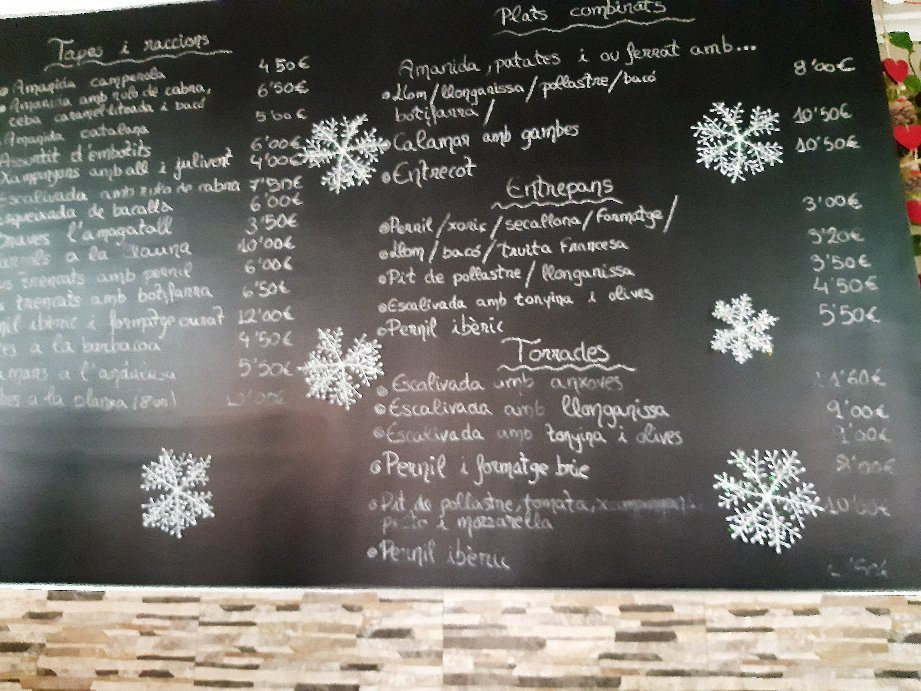 Tapes i raccions
Amanida camperola 4'50€
Amanida amb rulo de cabra, 6'50€
ceba caramelitzada i bacó
Amanida catalana 5'00€
Assortit d'embotits 6'00€
Xampinyons amb all i julivert 4'00€
Escalivada amb rulo de cabra 7'50€
Esqueixada de bacallà 6'00€
Braves l'amagatall 3'50€
a la 10'00€
trencats amb pernil 6'00€
trencats amb botifarra 6'50€
ibèric i formatge curat 12'00€
a la barbacoa 4'50€
a l'andalusa 5'50€
a la planxa (8un)
Plats combinats
Amanida, patates i ou ferrat amb...
Llom/llonganissa/pollastre/bacó 8'00€
botifarra/
Calamar amb gambes 10'50€
Entrecot 10'50€
Entrepans
Pernil/xoriç/secallona/formatge/ 3'00€
Llom/bacó/truita francesa 3'20€
Pit de pollastre/llonganissa 3'50€
Escalivada amb tonyina i olives 4'50€
Pernil ibèric 5'50€
Torrades
Escalivada amb anxoves
Escalivada amb llonganissa 9'00€
Escalivada amb tonyina i olives
Pernil i formatge brie
Pit de pollastre, tomata, 10'00€
i mozzarella
Pernil ibèric